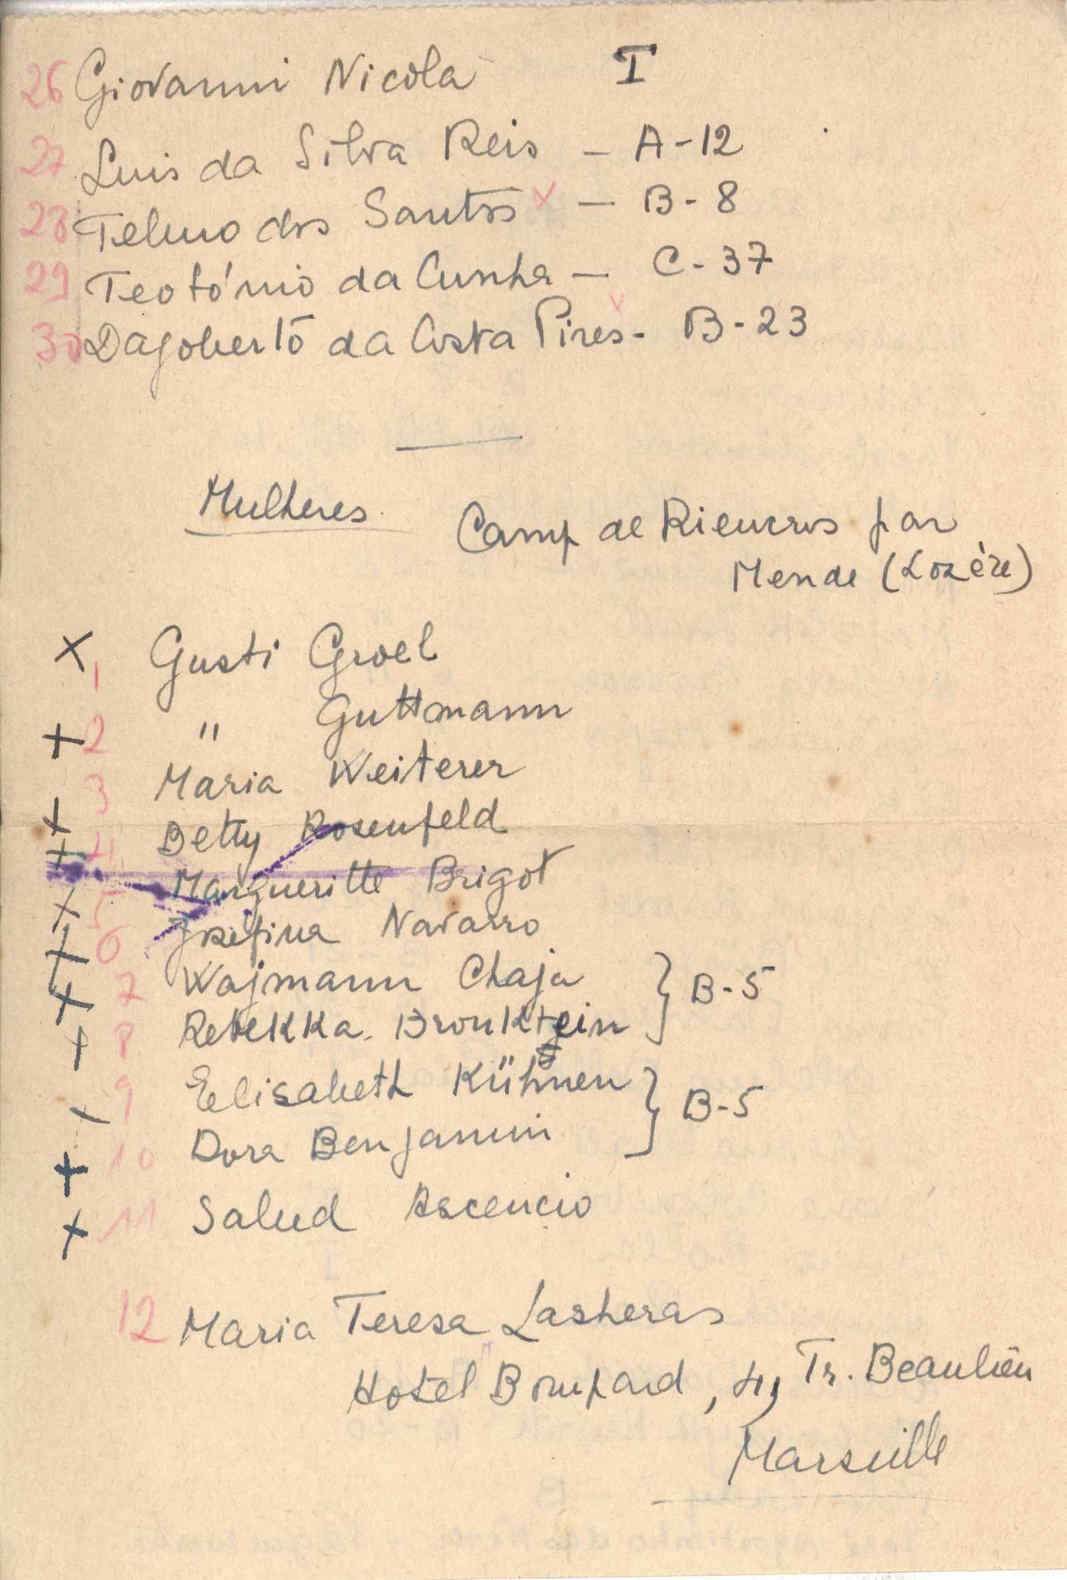 26 Giovanni Nicola I
27 Luis da Silva Reis - A-12
28 Telmo dos Santos x - B-8
29 Teotónio da Cunha - C-37
30 Dagoberto da Costa Pires - B-23
Mulheres
Camp de Rieucros par
Mende (Lozère)
x 1 Gusti Groel
+ 2 " Guttmann
3 Maria Weiterer
+ Betty Rosenfeld
+ 4 Margueritte Brigot
x 5 Josefina Navarro
+ 6 Wajmann Chaja } B-5
+ 7 Rebekka Bronktein
+ 8
9 Eelisabeth Kühnen } B-5
10 Dora Benjamin
+ 11 Salud Ascencio
12 Maria Teresa Lasheras
Hotel Bompard, 4, Tr. Beaulieu
Marseille